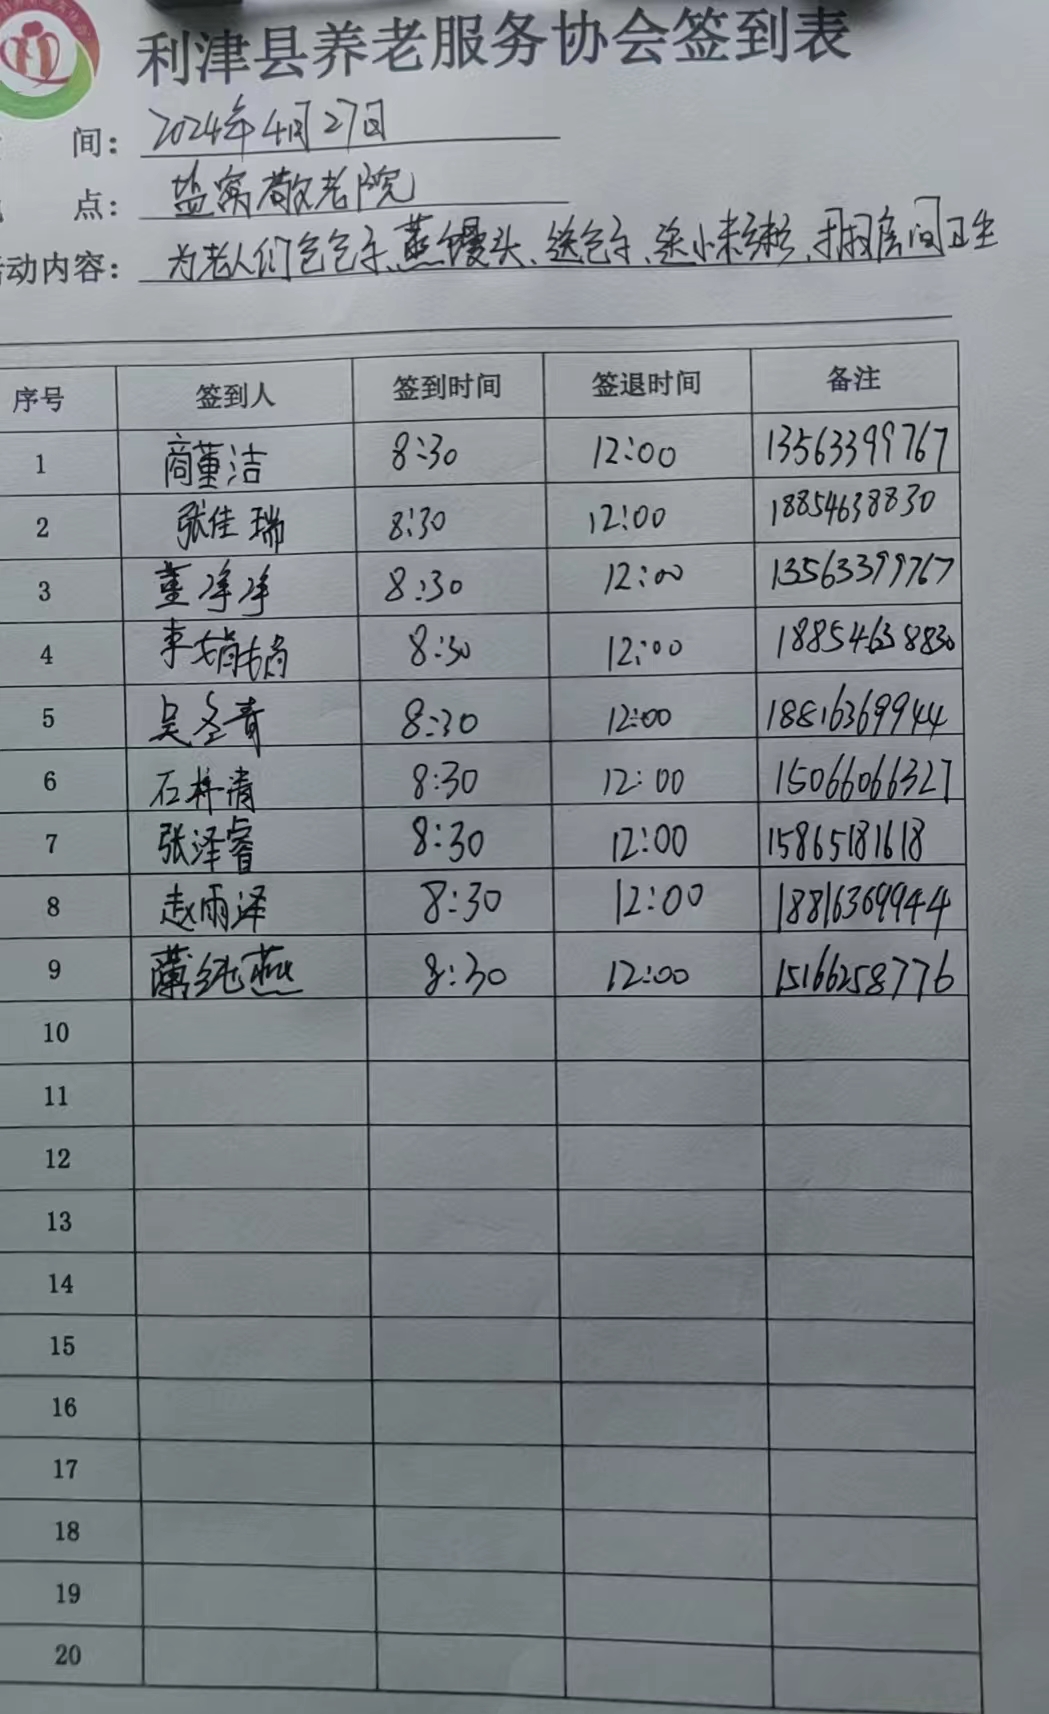 利津县养老服务协会签到表
间： 2024年4月27日
点： 盐窝敬老院
活动内容： 为老人们包包子、蒸馒头、送包子、送小米粥、打扫房间卫生
序号 签到人 签到时间 签退时间 备注
1 商董洁 8:30 12:00 13563399767
2 张佳瑞 8:30 12:00 18854638830
3 董净净 8:30 12:00 13563399767
4 李娟娟 8:30 12:00 18854638830
5 吴冬青 8:30 12:00 18816369944
6 石梓清 8:30 12:00 15066066327
7 张泽睿 8:30 12:00 15865181618
8 赵雨泽 8:30 12:00 18816369944
9 纯燕 8:30 12:00 15166258776
10
11
12
13
14
15
16
17
18
19
20